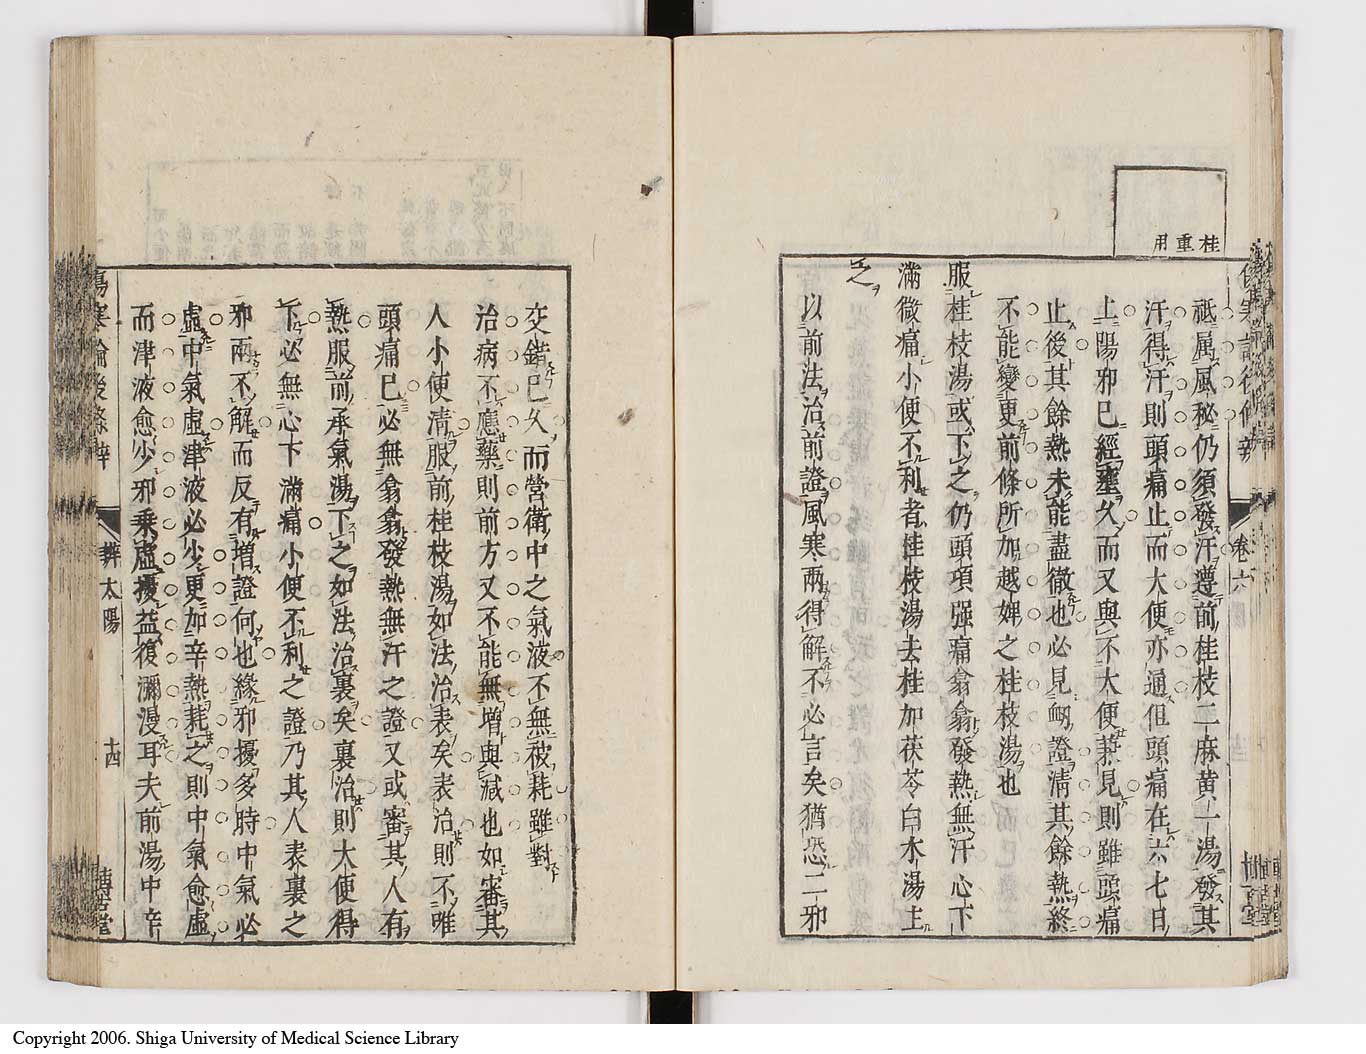 桂重用
祗属風秘仍須發汗遵前桂枝二麻黄一湯發其
汗得汗則頭痛止而大便亦通但頭痛在六七日
上陽邪已經壅久而又與不大便兼見則雖頭痛
止後其餘熱未能盡徹也必見衂證淸其餘熱終
不能變更前條所加越婢之桂枝湯也
服桂枝湯或下之仍頭項强痛翕翕發熱無汗心下
滿微痛小便不利者桂枝湯去桂加茯苓白朮湯主
之
以前法治前證風寒兩得解不必言矣猶恐二邪
卷六
交錯已久而營衛中之氣液不無被耗雖對
治病不應藥則前方又不能無增與減也如審其
人小便淸服前桂枝湯如法治表矣表治則不唯
頭痛已必無翕翕發熱無汗之證又或審其人有
熱服前承氣湯下之如法治裏矣裏治則大便得
下必無心下滿痛小便不利之證乃其人表裏之
邪兩不解而反有增證何也緣邪擾多時中氣必
虛中氣虛津液必少更加辛熱耗之則中氣愈虛
而津液愈少邪乘虛擾益復瀰漫耳夫前湯中辛
傷寒論後條辨
辨太陽
十四